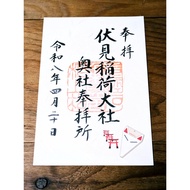 奉拝
伏見稲荷大社
奥社奉拝所
令和八年四月二十日